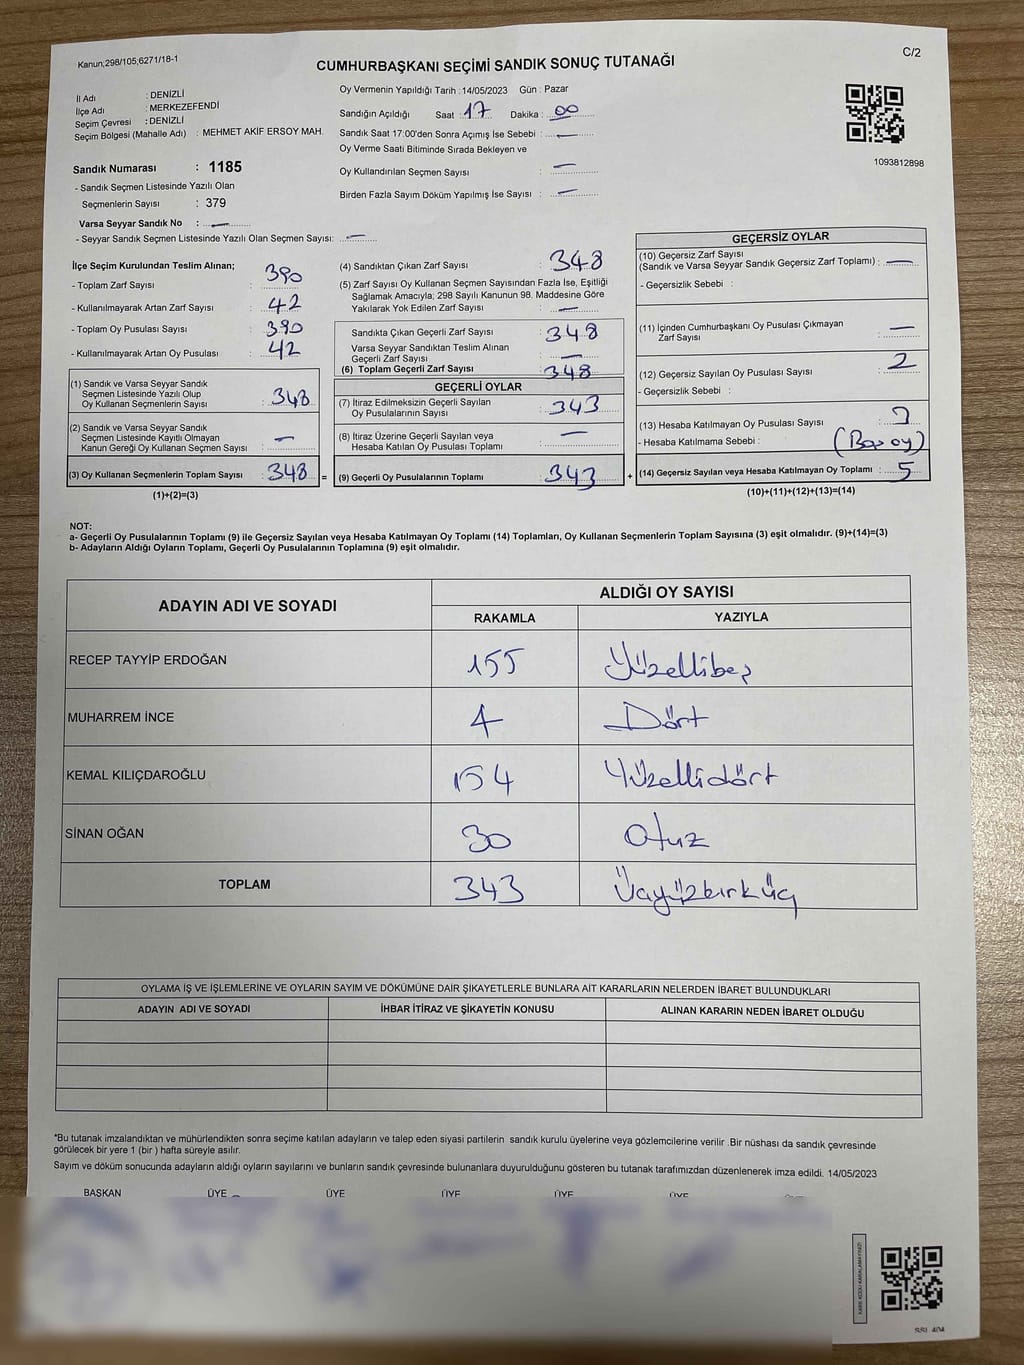 Kanun,298/105,6271/18-1
C/2
CUMHURBAŞKANI SEÇİMİ SANDIK SONUÇ TUTANAĞI
İl Adı : DENİZLİ
İlçe Adı : MERKEZEFENDİ
Seçim Çevresi : DENİZLİ
Seçim Bölgesi (Mahalle Adı) : MEHMET AKİF ERSOY MAH.
Sandık Numarası : 1185
- Sandık Seçmen Listesinde Yazılı Olan
Seçmenlerin Sayısı : 379
Varsa Seyyar Sandık No : —
- Seyyar Sandık Seçmen Listesinde Yazılı Olan Seçmen Sayısı: —
Oy Vermenin Yapıldığı Tarih : 14/05/2023 Gün : Pazar
Sandığın Açıldığı Saat : 17 Dakika : 00
Sandık Saat 17:00'den Sonra Açımış İse Sebebi : —
Oy Verme Saati Bitiminde Sırada Bekleyen ve
Oy Kullandırılan Seçmen Sayısı : —
Birden Fazla Sayım Döküm Yapılmış İse Sayısı : —
1093812898
İlçe Seçim Kurulundan Teslim Alınan;
- Toplam Zarf Sayısı : 390
- Kullanılmayarak Artan Zarf Sayısı : 42
- Toplam Oy Pusulası Sayısı : 390
- Kullanılmayarak Artan Oy Pusulası : 42
(1) Sandık ve Varsa Seyyar Sandık
Seçmen Listesinde Yazılı Olup
Oy Kullanan Seçmenlerin Sayısı : 348
(2) Sandık ve Varsa Seyyar Sandık
Seçmen Listesinde Kayıtlı Olmayan
Kanun Gereği Oy Kullanan Seçmen Sayısı : —
(3) Oy Kullanan Seçmenlerin Toplam Sayısı : 348 =
(1)+(2)=(3)
(4) Sandıktan Çıkan Zarf Sayısı : 348
(5) Zarf Sayısı Oy Kullanan Seçmen Sayısından Fazla İse, Eşitliği
Sağlamak Amacıyla; 298 Sayılı Kanunun 98. Maddesine Göre
Yakılarak Yok Edilen Zarf Sayısı : —
Sandıkta Çıkan Geçerli Zarf Sayısı : 348
Varsa Seyyar Sandıktan Teslim Alınan
Geçerli Zarf Sayısı : —
(6) Toplam Geçerli Zarf Sayısı : 348
GEÇERLİ OYLAR
(7) İtiraz Edilmeksizin Geçerli Sayılan
Oy Pusulalarının Sayısı : 343
(8) İtiraz Üzerine Geçerli Sayılan veya
Hesaba Katılan Oy Pusulası Toplamı : —
(9) Geçerli Oy Pusulalarının Toplamı : 343 +
GEÇERSİZ OYLAR
(10) Geçersiz Zarf Sayısı
(Sandık ve Varsa Seyyar Sandık Geçersiz Zarf Toplamı) : —
- Geçersizlik Sebebi :
(11) İçinden Cumhurbaşkanı Oy Pusulası Çıkmayan
Zarf Sayısı : —
(12) Geçersiz Sayılan Oy Pusulası Sayısı : 2
- Geçersizlik Sebebi :
(13) Hesaba Katılmayan Oy Pusulası Sayısı : 3
- Hesaba Katılmama Sebebi : (Boş oy)
(14) Geçersiz Sayılan veya Hesaba Katılmayan Oy Toplamı : 5
(10)+(11)+(12)+(13)=(14)
NOT:
a- Geçerli Oy Pusulalarının Toplamı (9) ile Geçersiz Sayılan veya Hesaba Katılmayan Oy Toplamı (14) Toplamları, Oy Kullanan Seçmenlerin Toplam Sayısına (3) eşit olmalıdır. (9)+(14)=(3)
b- Adayların Aldığı Oyların Toplamı, Geçerli Oy Pusulalarının Toplamına (9) eşit olmalıdır.
ADAYIN ADI VE SOYADI
ALDIĞI OY SAYISI
RAKAMLA YAZIYLA
RECEP TAYYİP ERDOĞAN 155 Yüzellibeş
MUHARREM İNCE 4 Dört
KEMAL KILIÇDAROĞLU 154 Yüzellidört
SİNAN OĞAN 30 Otuz
TOPLAM 343 Üçyüzkırküç
OYLAMA İŞ VE İŞLEMLERİNE VE OYLARIN SAYIM VE DÖKÜMÜNE DAİR ŞİKAYETLERLE BUNLARA AİT KARARLARIN NELERDEN İBARET BULUNDUKLARI
ADAYIN ADI VE SOYADI İHBAR İTİRAZ VE ŞİKAYETİN KONUSU ALINAN KARARIN NEDEN İBARET OLDUĞU
*Bu tutanak imzalandıktan ve mühürlendikten sonra seçime katılan adayların ve talep eden siyasi partilerin sandık kurulu üyelerine veya gözlemcilerine verilir .Bir nüshası da sandık çevresinde
görülecek bir yere 1 (bir ) hafta süreyle asılır.
Sayım ve döküm sonucunda adayların aldığı oyların sayılarını ve bunların sandık çevresinde bulunanlara duyurulduğunu gösteren bu tutanak tarafımızdan düzenlenerek imza edildi. 14/05/2023
BAŞKAN ÜYE ÜYE ÜYE ÜYE ÜYE ÜYE
KARE KODU KARALAMAYINIZ!